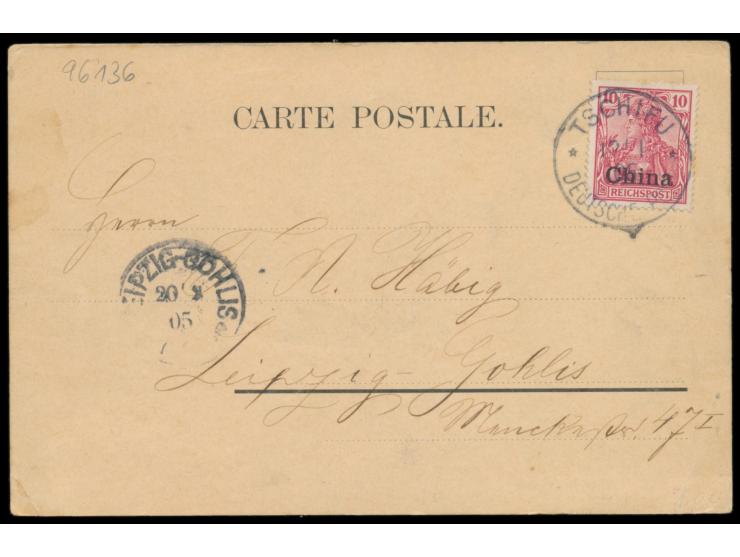 96136
CARTE POSTALE.
10 10
China
REICHSPOST
TSCHIFU
DEUTSCHE
Herrn
N. Häbig
LEIPZIG-GOHLIS
20
05
Leipzig-Gohlis
47 I